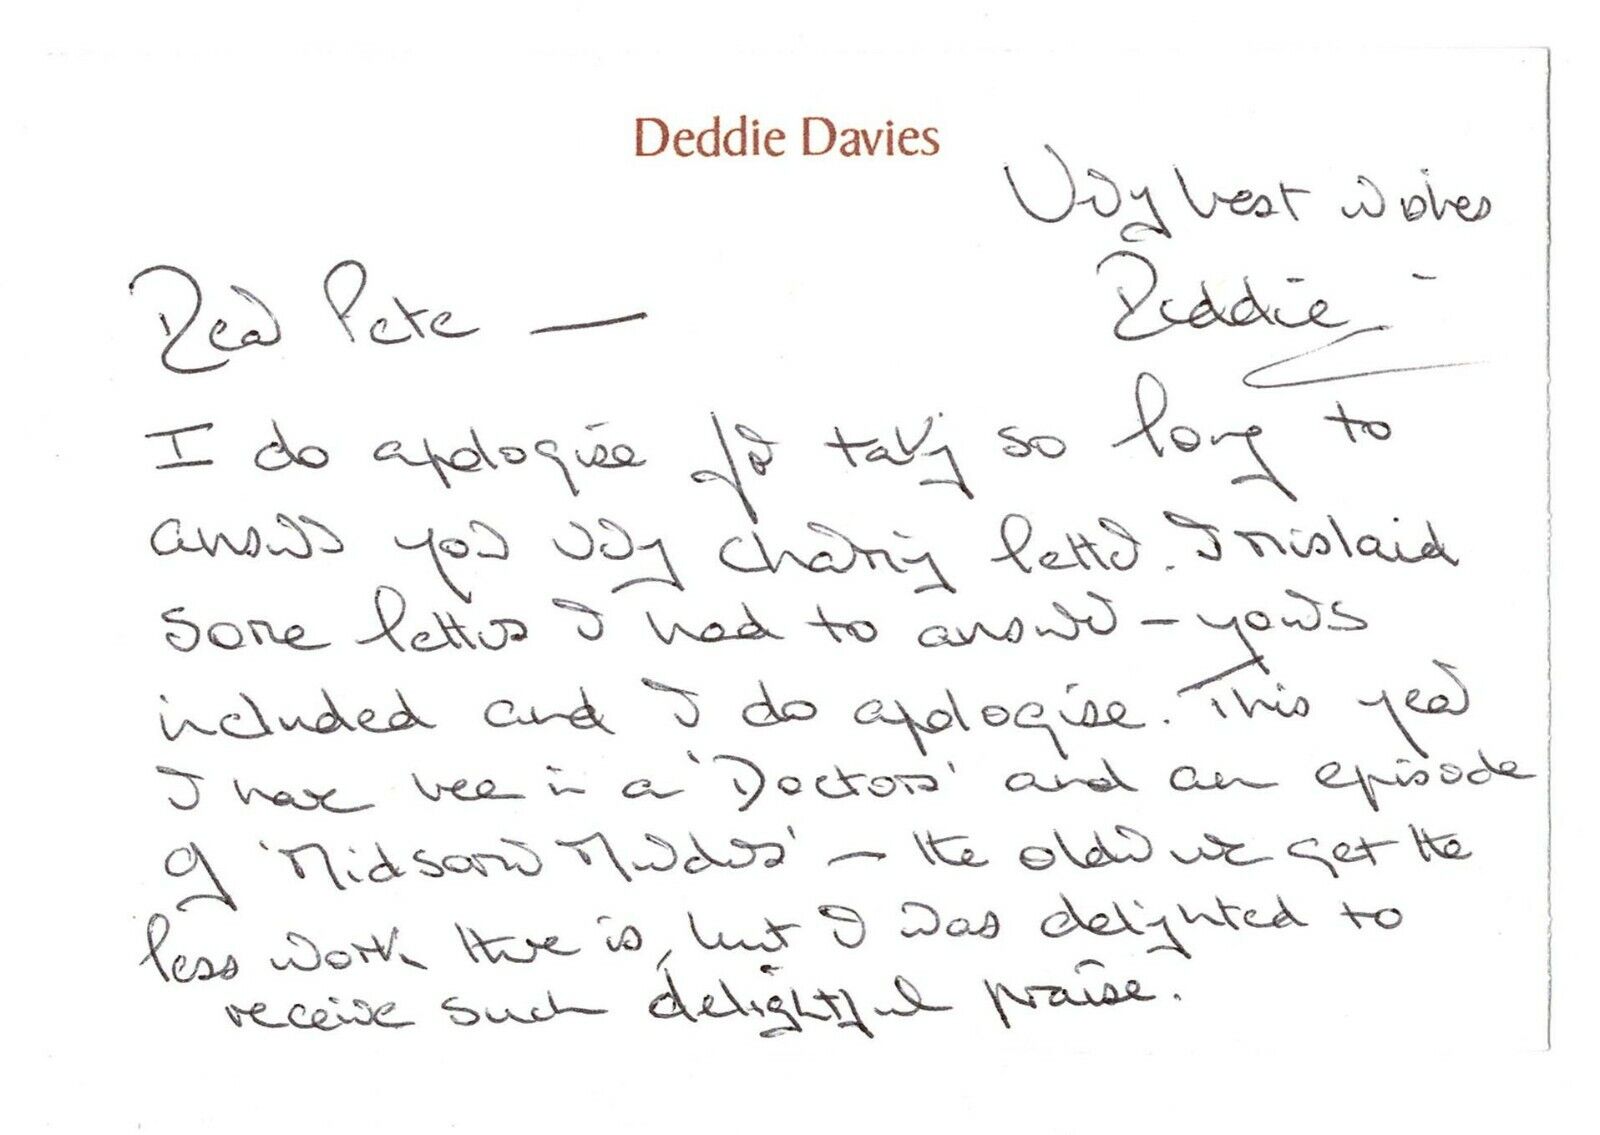 Deddie Davies
Dear Pete —
I do apologise for taking so long to
answer your very charming letter. I mislaid
some letters I had to answer – yours
included and I do apologise. This year
I have been in a 'Doctors' and an episode
of 'Midsomer Murders' – the older we get the
less work there is, but I was delighted to
receive such delightful praise.
Very best wishes
Deddie –